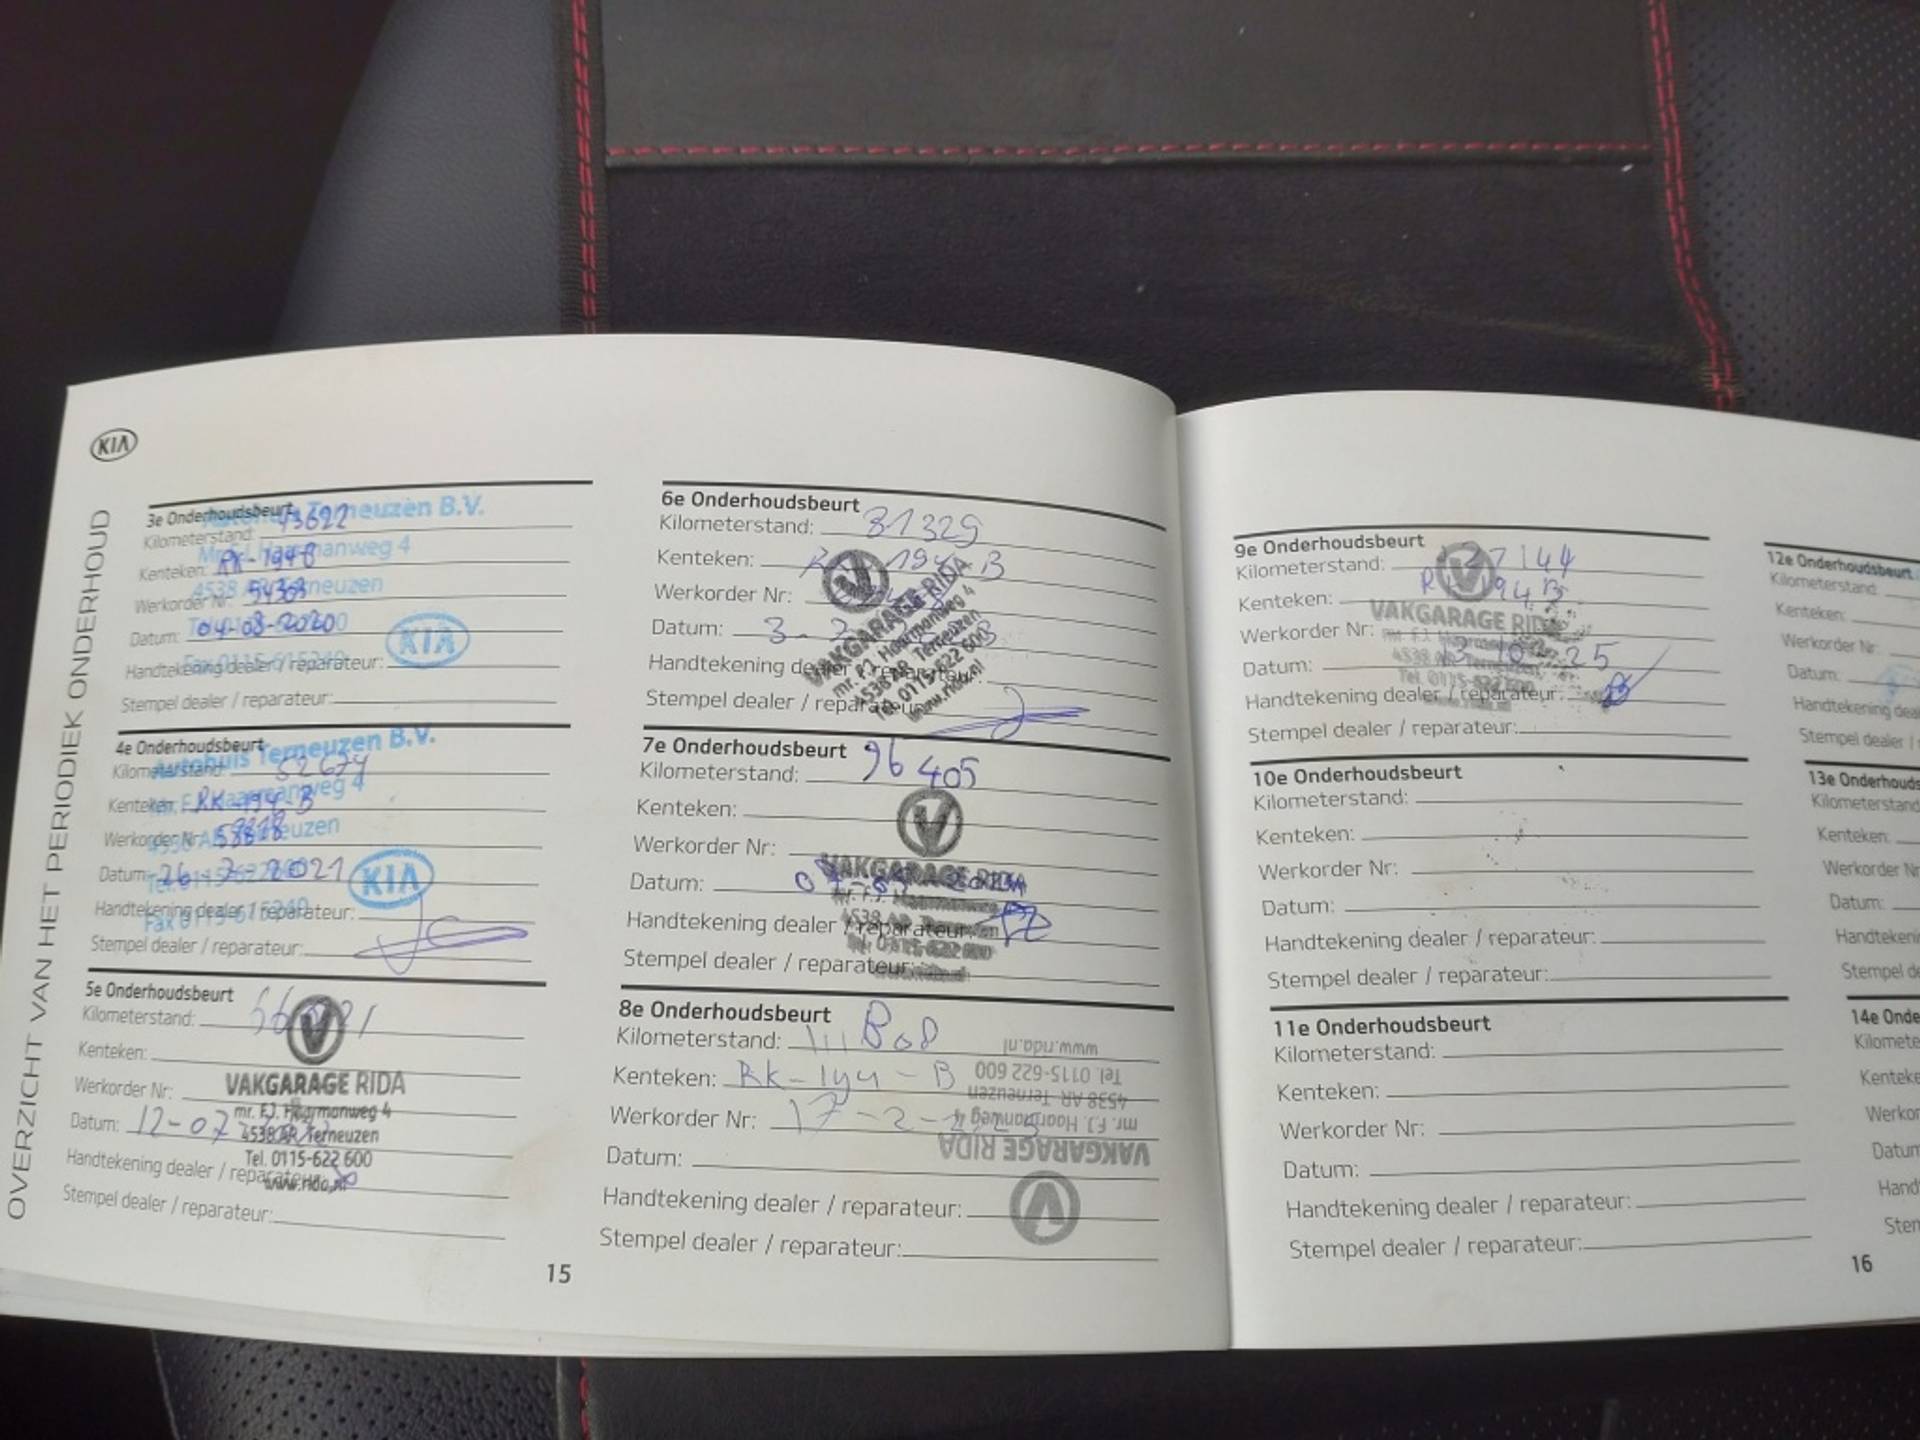 KIA
OVERZICHT VAN HET PERIODIEK ONDERHOUD
3e Onderhoudsbeurt
Terneuzen B.V.
Kilometerstand: 43622
Kenteken: RK-194-B
Werkorder Nr:
Datum: 04-08-2020
KIA
Handtekening dealer / reparateur:
Stempel dealer / reparateur:
4e Onderhoudsbeurt
Autohuis Terneuzen B.V.
Kilometerstand: 52674
Kenteken: RK-194-B
Werkorder Nr:
Datum: 26-7-2021
KIA
Handtekening dealer / reparateur:
Stempel dealer / reparateur:
5e Onderhoudsbeurt
Kilometerstand:
Kenteken:
VAKGARAGE RIDA
Werkorder Nr:
mr. F.J. Haarmanweg 4
Datum: 12-07
4538 AR Terneuzen
Tel. 0115-622 600
Handtekening dealer / reparateur:
www.rida.nl
Stempel dealer / reparateur:
15
6e Onderhoudsbeurt
Kilometerstand: 81329
Kenteken: 194 B
Werkorder Nr:
Datum: 3-
VAKGARAGE RIDA
mr. F.J. Haarmanweg 4
4538 AR Terneuzen
Tel. 0115-622 600
www.rida.nl
Handtekening dealer / reparateur:
Stempel dealer / reparateur:
7e Onderhoudsbeurt
Kilometerstand: 96405
Kenteken:
Werkorder Nr:
VAKGARAGE RIDA
Datum:
4538 AR Terneuzen
Handtekening dealer / reparateur:
Tel. 0115-622 600
Stempel dealer / reparateur:
8e Onderhoudsbeurt
Kilometerstand: 111808
www.rida.nl
Kenteken: RK-194-B
Tel. 0115-622 600
4538 AR Terneuzen
Werkorder Nr: 17-2-
mr. F.J. Haarmanweg 4
VAKGARAGE RIDA
Datum:
Handtekening dealer / reparateur:
Stempel dealer / reparateur:
9e Onderhoudsbeurt
Kilometerstand: 27144
Kenteken: 194B
VAKGARAGE RIDA
Werkorder Nr:
4538 AR Terneuzen
Datum: 25
Tel. 0115-622 600
Handtekening dealer / reparateur:
Stempel dealer / reparateur:
10e Onderhoudsbeurt
Kilometerstand:
Kenteken:
Werkorder Nr:
Datum:
Handtekening dealer / reparateur:
Stempel dealer / reparateur:
11e Onderhoudsbeurt
Kilometerstand:
Kenteken:
Werkorder Nr:
Datum:
Handtekening dealer / reparateur:
Stempel dealer / reparateur:
12e Onderhoudsbeurt
Kilometerstand:
Kenteken:
Werkorder Nr:
Datum:
Handtekening
Stempel dealer /
13e Onderhouds
Kilometerstand
Kenteken:
Werkorder Nr
Datum:
Handtekeni
Stempel de
14e Onde
Kilomete
Kenteke
Werkor
Datum
Hand
Stem
16